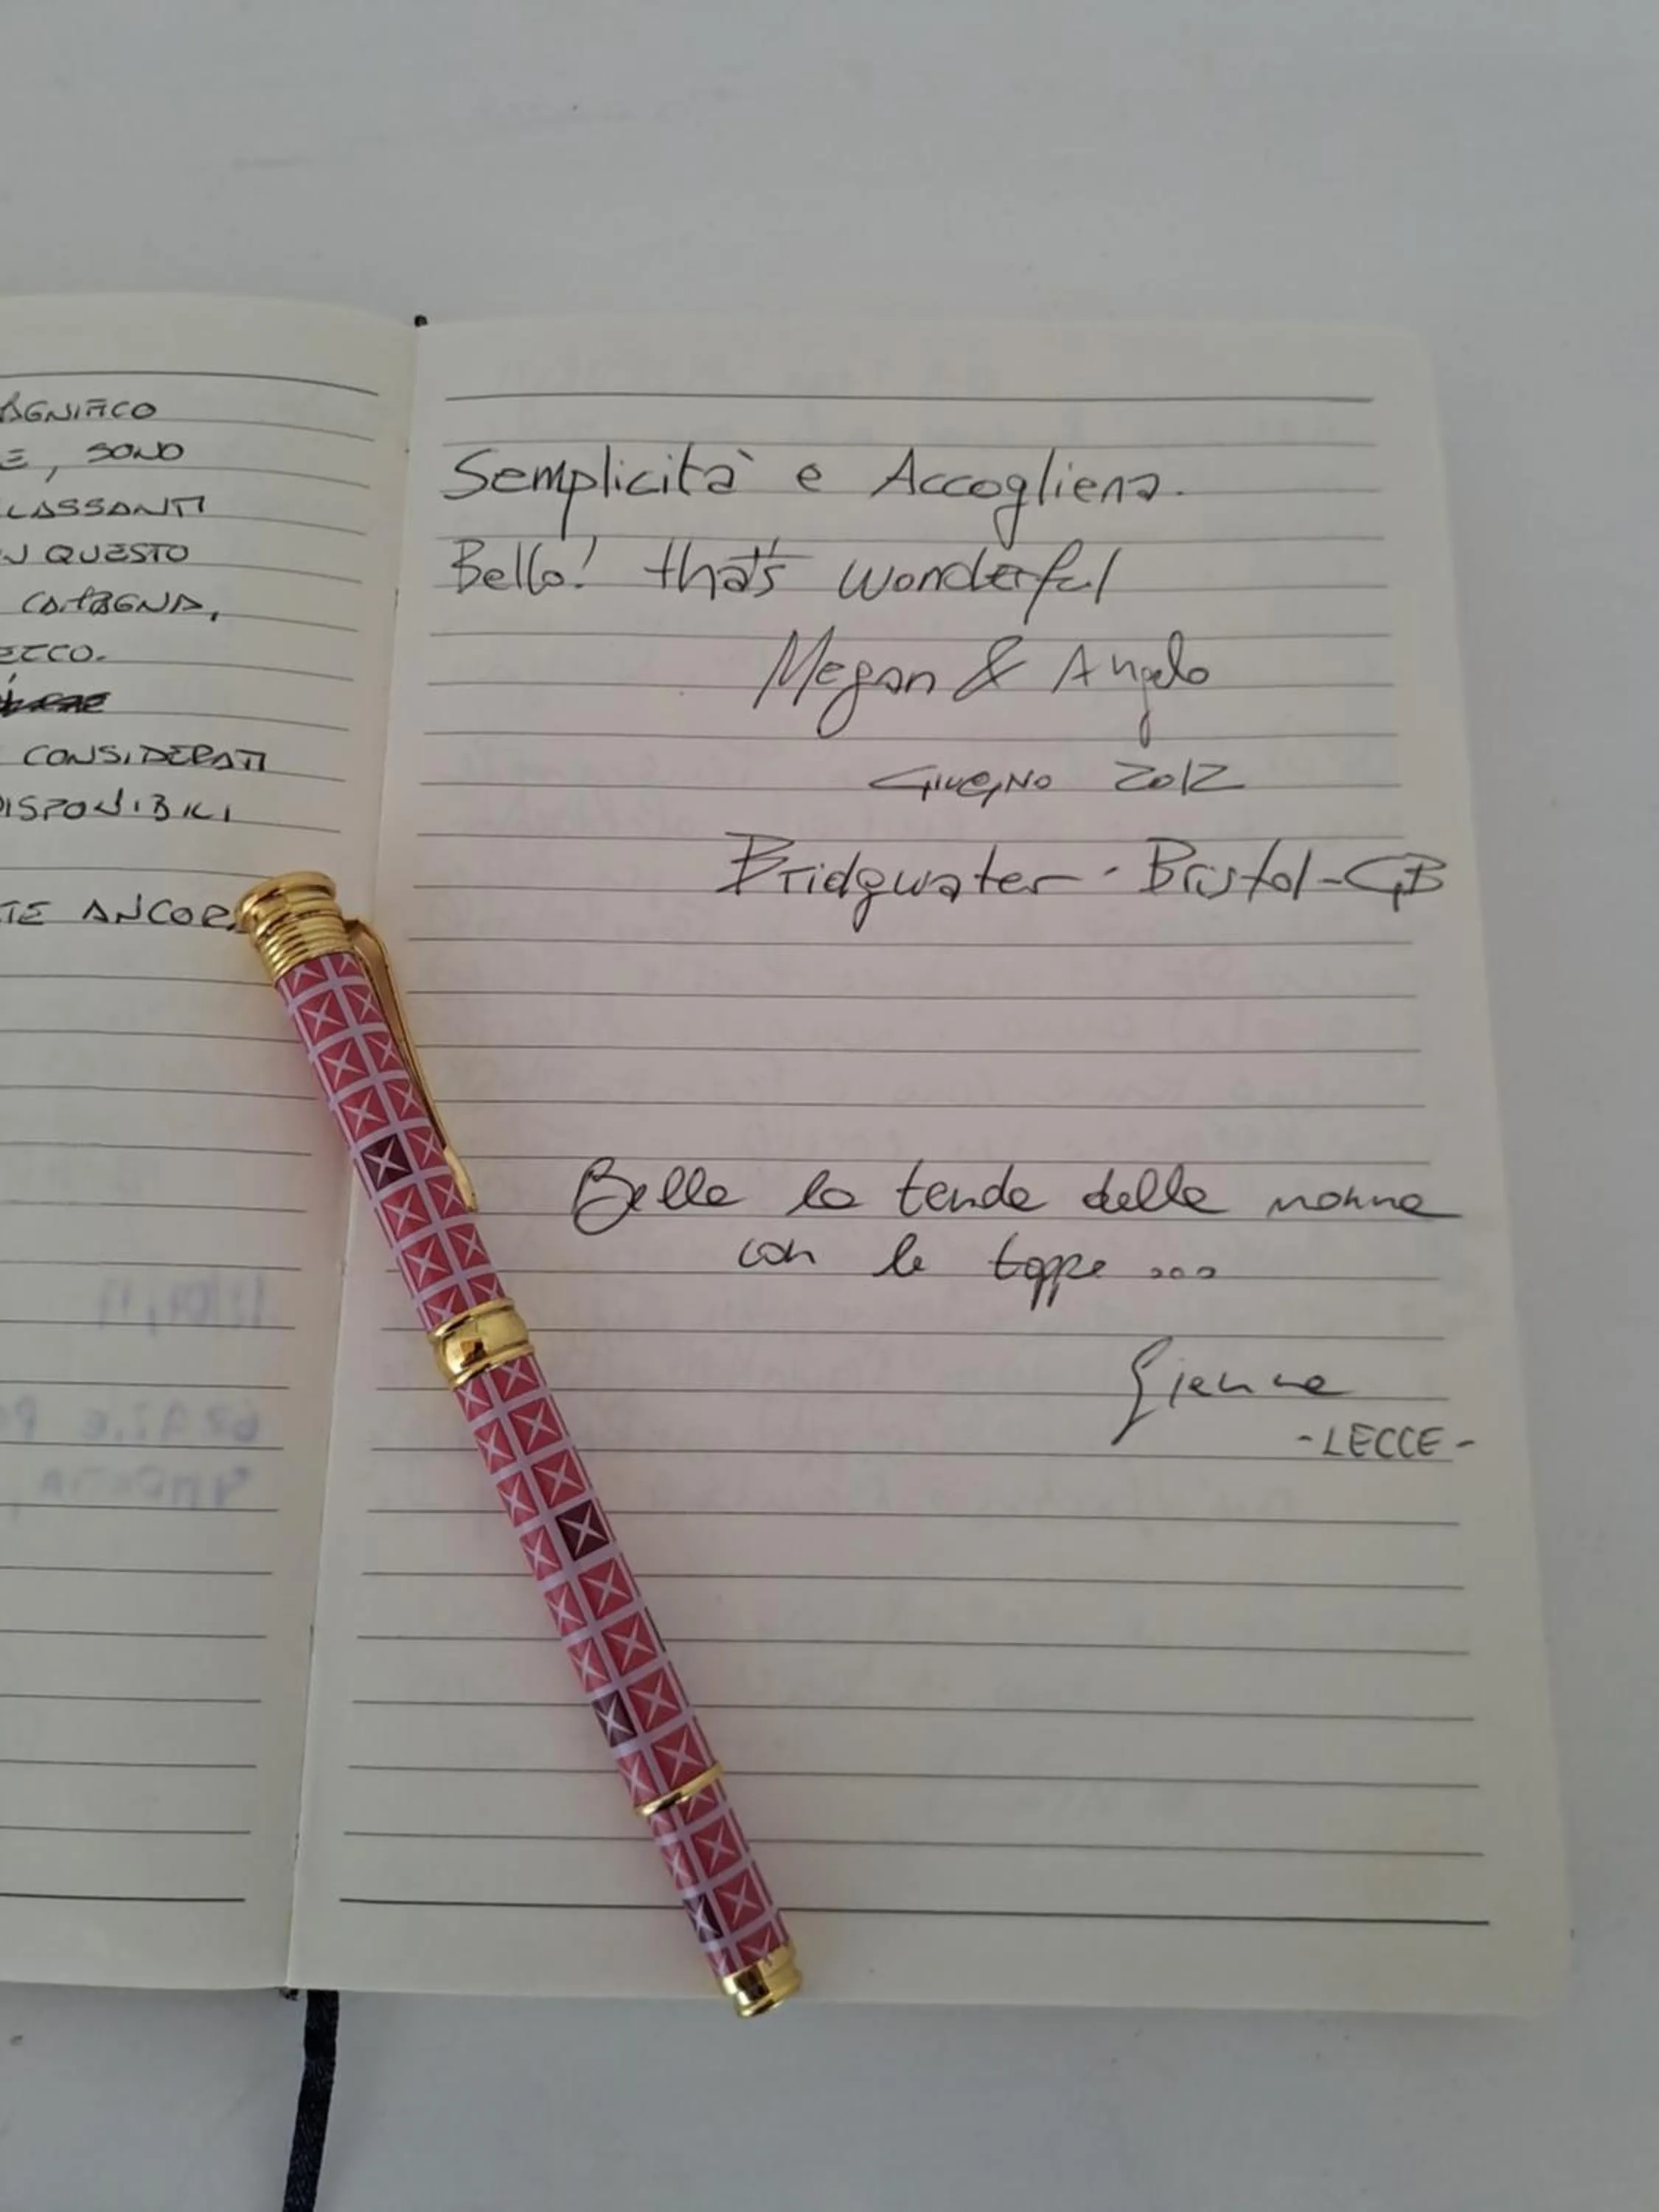 AGNIFICO
E, SONO
LASSANTI
N QUESTO
CAMPAGNA,
ECCO.
CONSIDERATI
DISPONIBILI
TE ANCORA
Semplicità e Accogliena.
Bello! that's wonderful
Megan & Angelo
GIUGNO 2012
Bridgwater - Bristol - GB
Belle le tende della nonna
con le toppe...
Gianna
- LECCE -